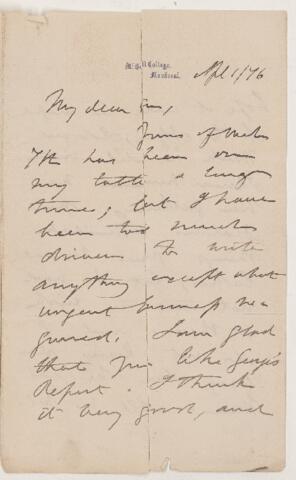 McGill College,
Montreal.
Apl 1/76
My dear Sir,
Yours of March
7th has been on
my table a long
time; but I have
been too much
driven to write
anything except what
urgent business re
quired. I am glad
that you like
Report. I think
it very good, and